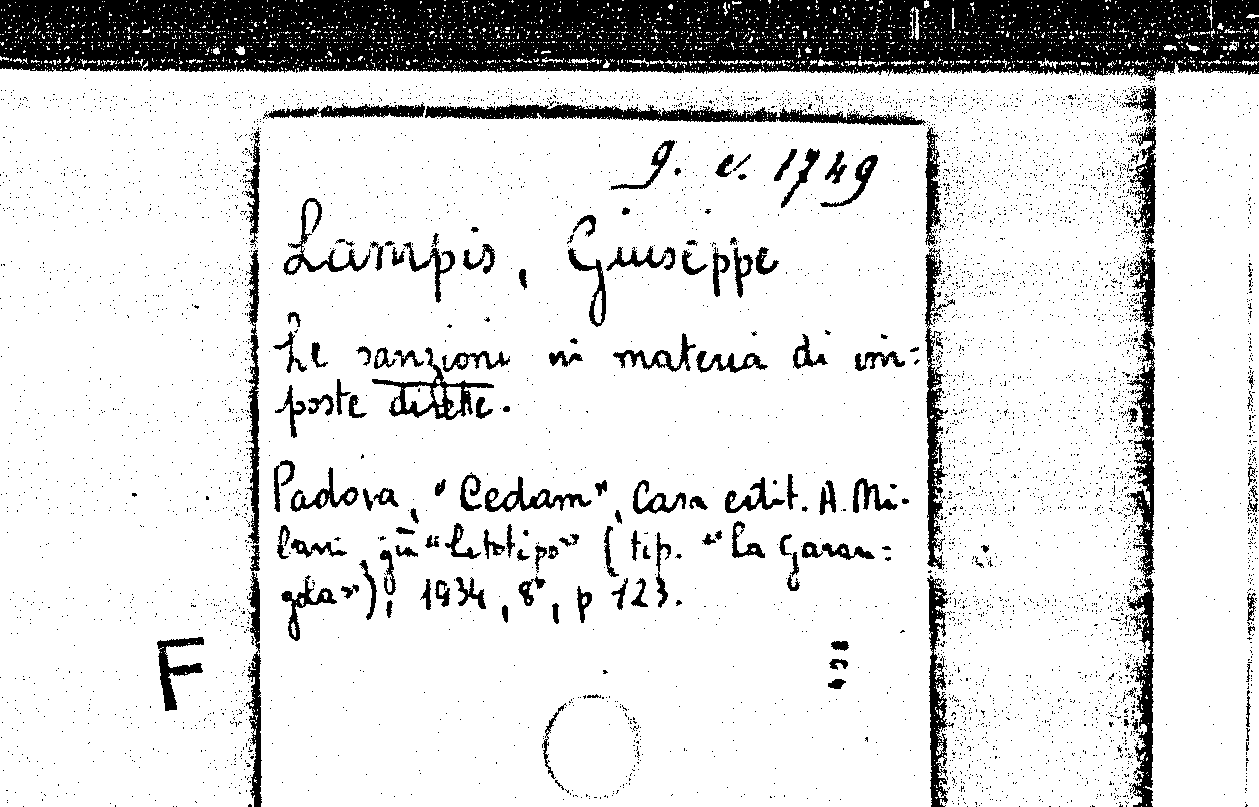 g. v. 1749
Lampis, Giuseppe
Le sanzioni in materia di im=
poste dirette.
Padova, "Cedam", Casa edit. A. Mi-
lani, già "Litotipo" (tip. "La Garan=
gola"), 1934, 8°, p 123.
F